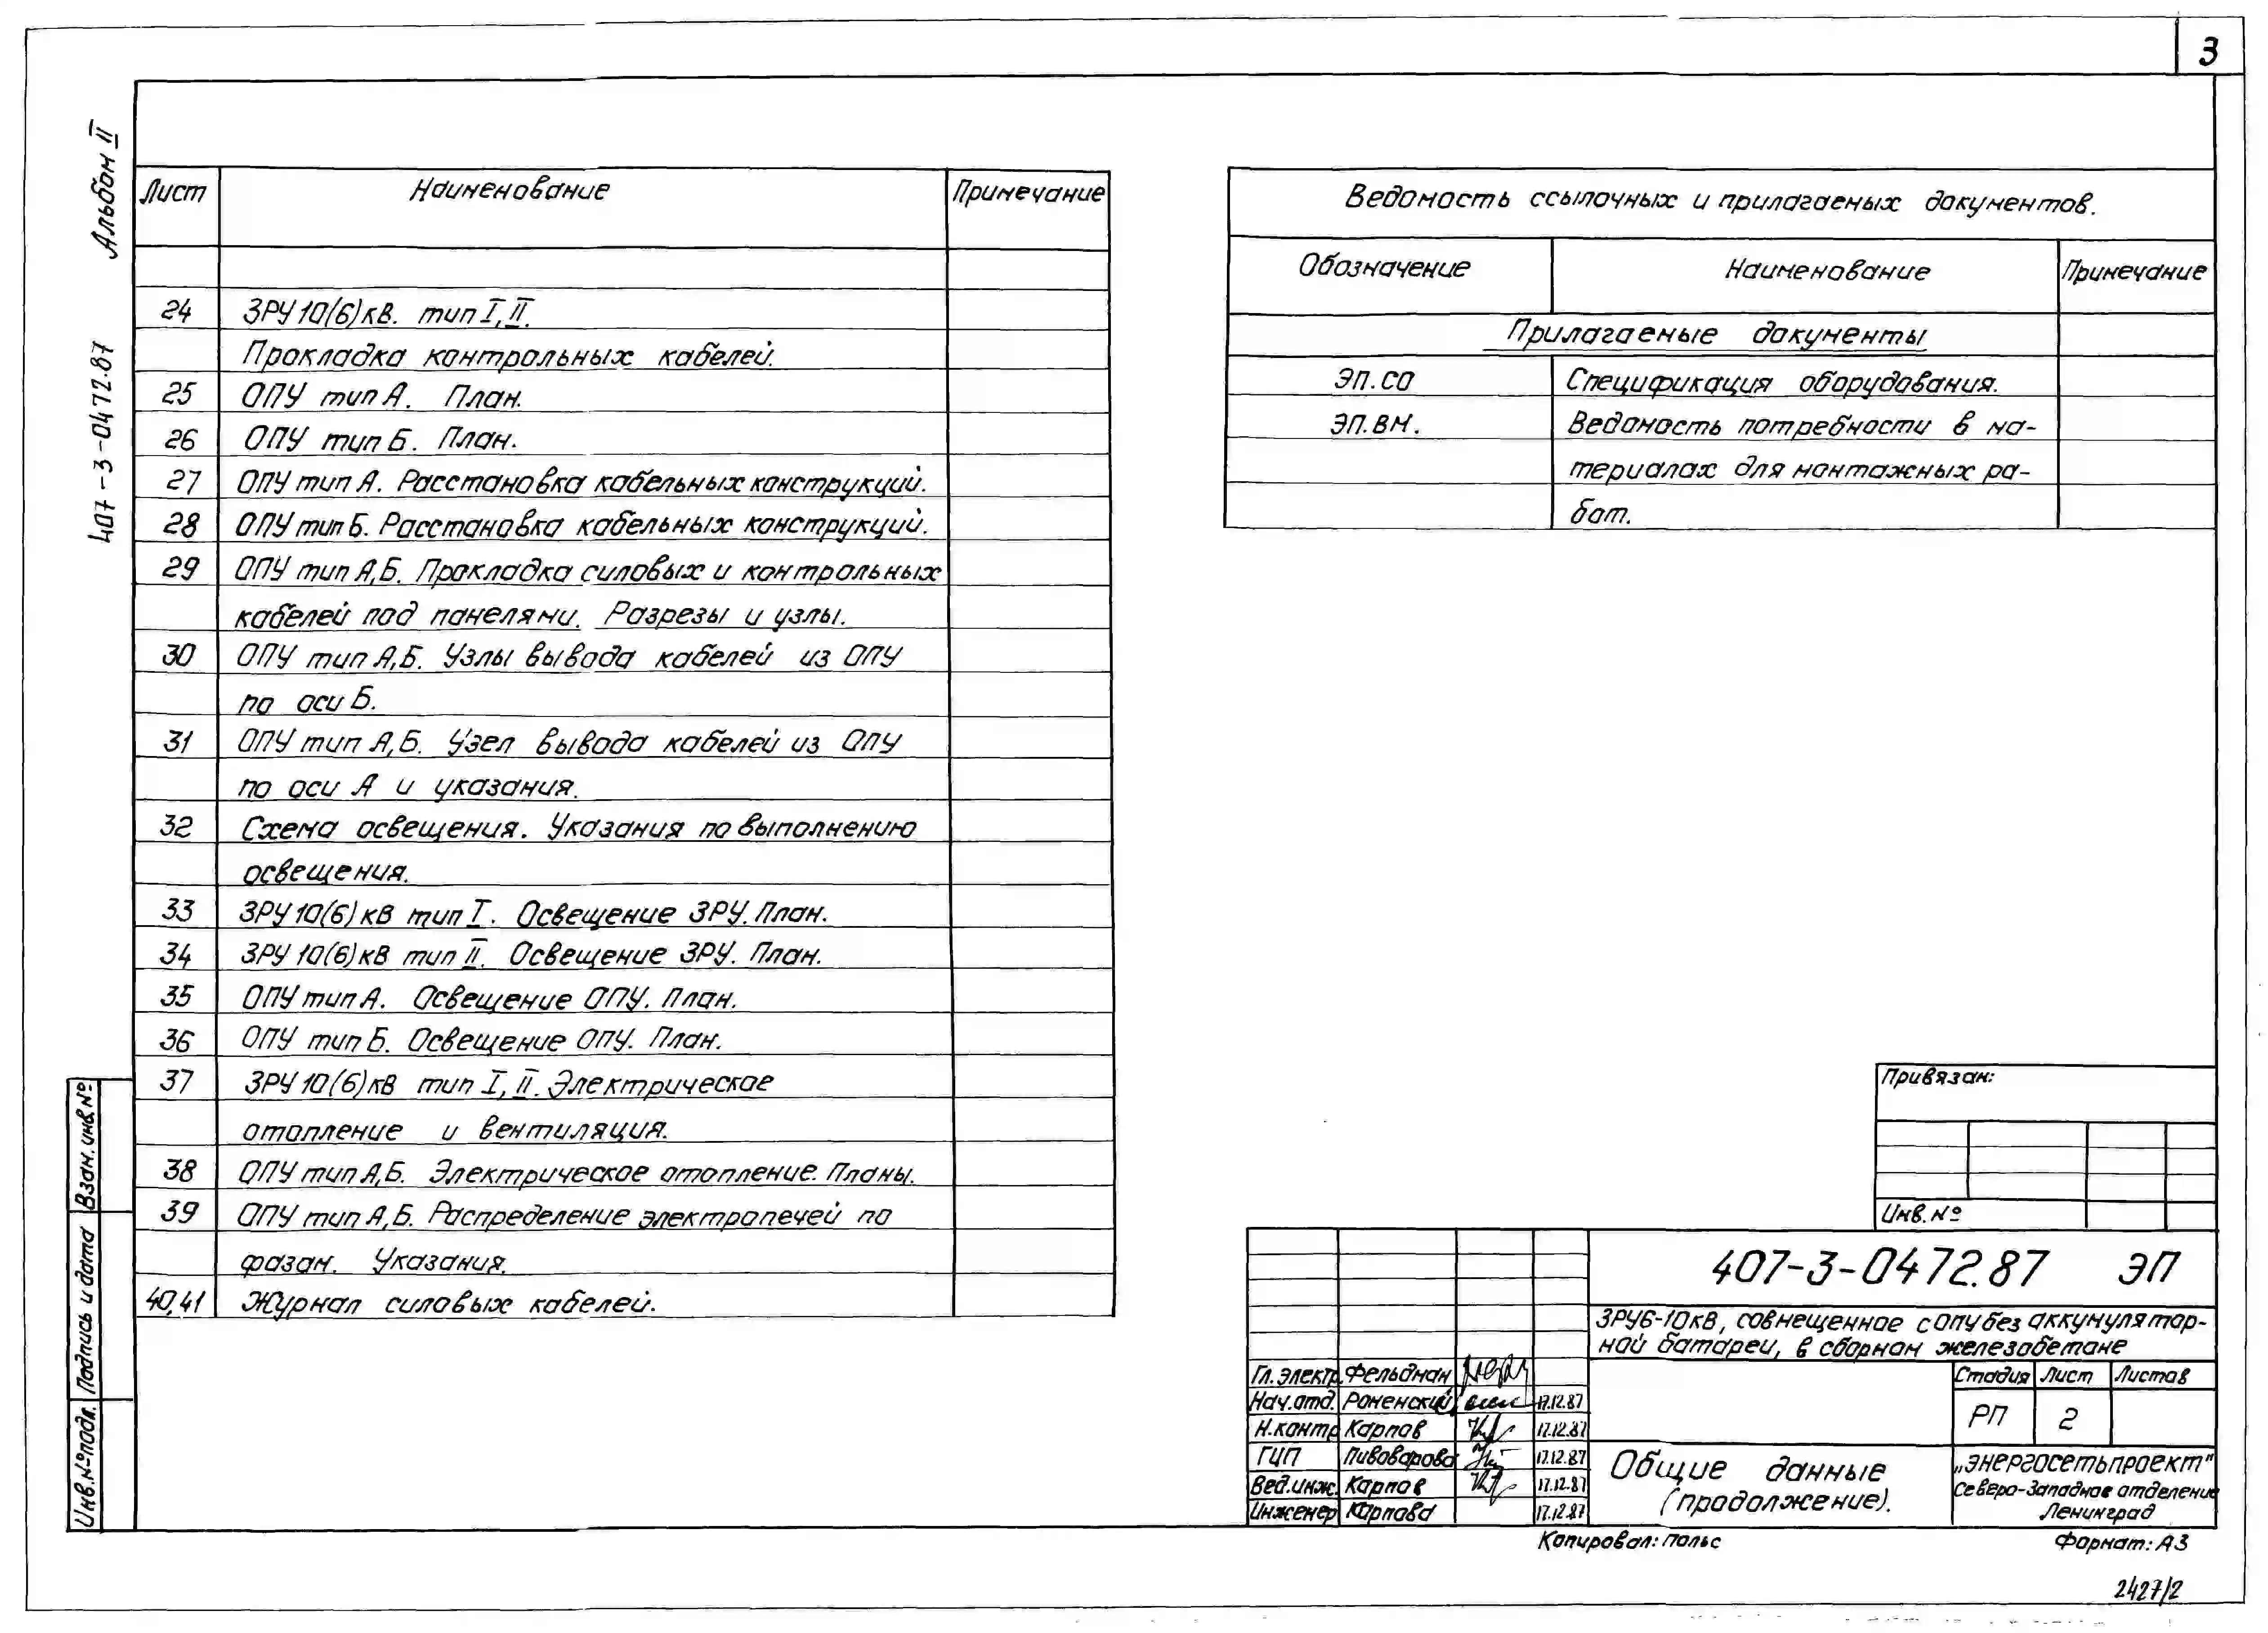 3
Альбом II
407-3-0472.87
Лист Наименование Примечание
24 ЗРУ 10(6)кВ. тип I, II.
Прокладка контрольных кабелей.
25 ОПУ тип А. План.
26 ОПУ тип Б. План.
27 ОПУ тип А. Расстановка кабельных конструкций.
28 ОПУ тип Б. Расстановка кабельных конструкций.
29 ОПУ тип А,Б. Прокладка силовых и контрольных
кабелей под панелями. Разрезы и узлы.
30 ОПУ тип А,Б. Узлы вывода кабелей из ОПУ
по оси Б.
31 ОПУ тип А,Б. Узел вывода кабелей из ОПУ
по оси А и указания.
32 Схема освещения. Указания по выполнению
освещения.
33 ЗРУ 10(6)кВ тип I. Освещение ЗРУ. План.
34 ЗРУ 10(6)кВ тип II. Освещение ЗРУ. План.
35 ОПУ тип А. Освещение ОПУ. План.
36 ОПУ тип Б. Освещение ОПУ. План.
37 ЗРУ 10(6)кВ тип I, II. Электрическое
отопление и вентиляция.
38 ОПУ тип А,Б. Электрическое отопление. Планы.
39 ОПУ тип А,Б. Распределение электропечей по
фазам. Указания.
40,41 Журнал силовых кабелей.
Ведомость ссылочных и прилагаемых документов.
Обозначение Наименование Примечание
Прилагаемые документы
ЭП.СО Спецификация оборудования.
ЭП.ВМ. Ведомость потребности в ма-
териалах для монтажных ра-
бот.
Привязан:
Инв.№
407-3-0472.87 ЭП
ЗРУ6-10кВ, совмещенное с ОПУ без аккумулятор-
ной батареи, в сборном железобетоне
Гл.электр. Фельдман
Нач.отд. Роменский 17.12.87
Н.контр Карпов 17.12.87
ГИП Пивоварова 17.12.87
Вед.инж. Карпов 17.12.87
Инженер Карпова 17.12.87
Стадия Лист Листов
РП 2
Общие данные
(продолжение).
„Энергосетьпроект"
Северо-Западное отделение
Ленинград
Копировал: Польс
Формат: А3
2427/2
Взам.инв.№
Подпись и дата
Инв.№подл.